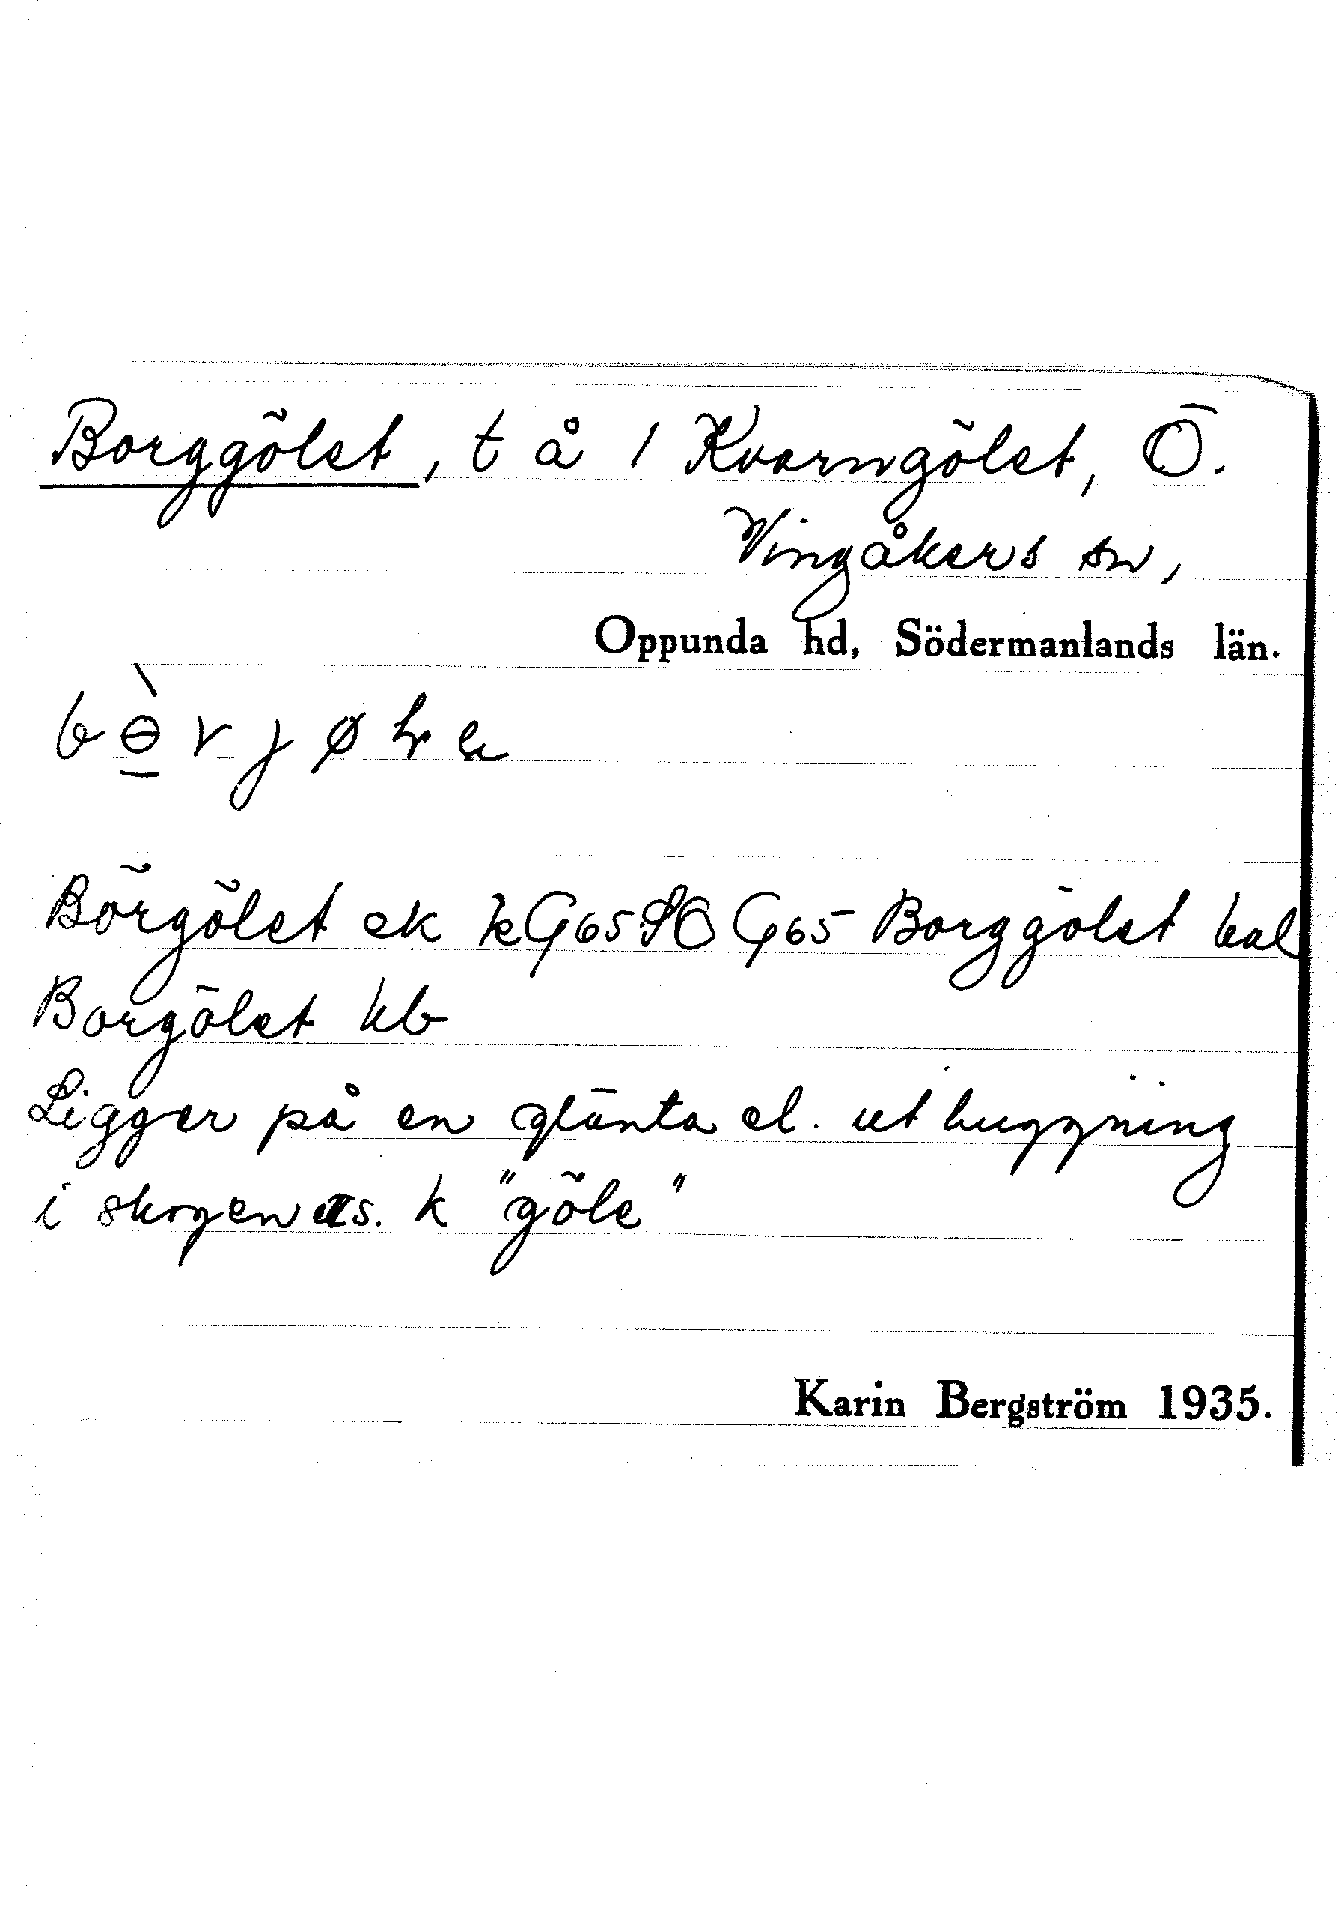 Borggölet, t å 1 Kvarngölet, Ö.
Vingåkers sn,
Oppunda hd, Södermanlands län.
Börgölet ek kG65 SO G65 Borggölet bal
Borgölet kb
Ligger på en glänta el. uthuggning
i skogen as. k "göle"
Karin Bergström 1935.